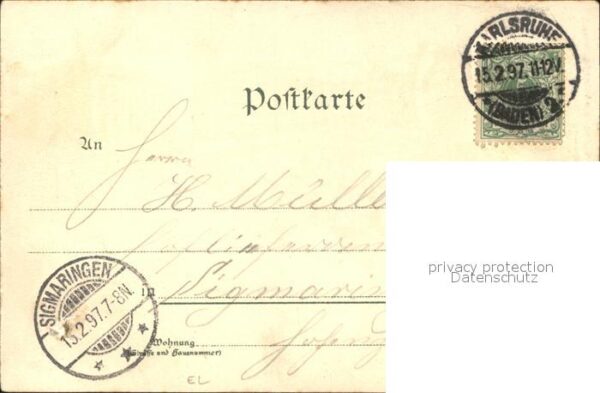 KARLSRUHE
15.2.97.11-12V
*(BADEN) 2
Postkarte
An
Herrn
H. Mülle
Hoflieferan
in Sigmarin
SIGMARINGEN
15.2.97.7-8N.
Wohnung
(Straße und Hausnummer)
EL
privacy protection
Datenschutz